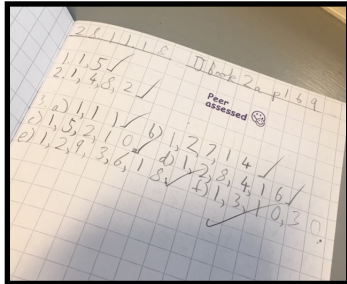 28.11.18 Book 2a p169
1. 1,5 ✓
2. 1,4,8,2 ✓
Peer
assessed
3. a) 1,11 ✓ b) 1,2,7,14 ✓
c) 1,5,2,10 ✓ d) 1,2,8,4,16 ✓
e) 1,2,9,3,6,18, ✓ f) 1,3,10,30.